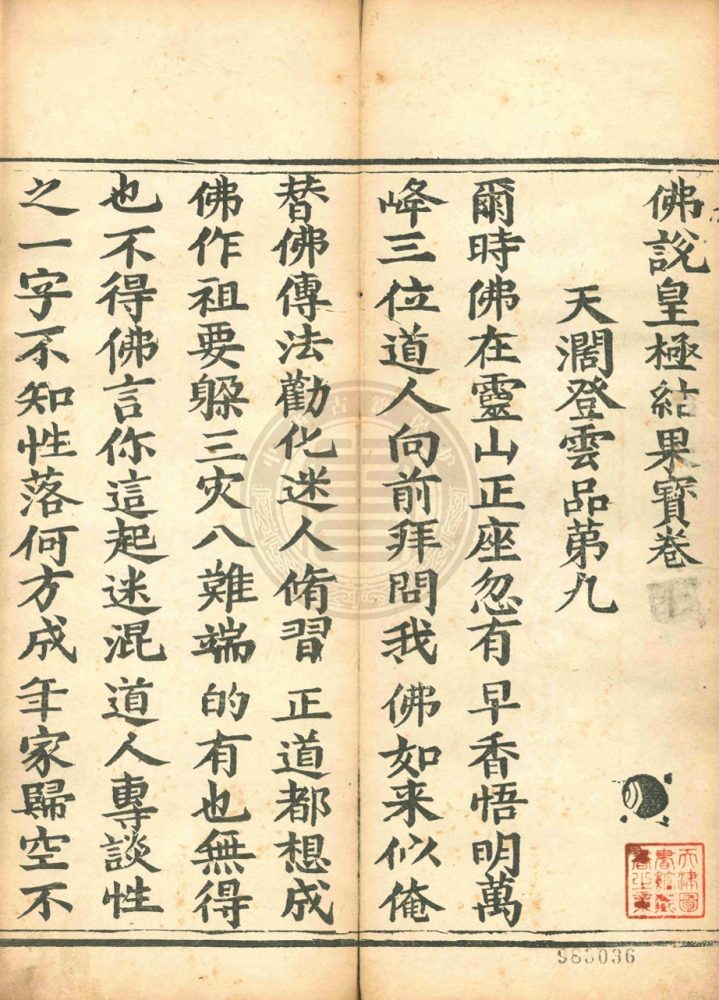 佛說皇極結果寶卷
天濶登雲品第九
爾時佛在靈山正座忽有早香悟明萬
峰三位道人向前拜問我佛如来似俺
替佛傳法勸化迷人脩習正道都想成
佛作祖要躲三灾八難端的有也無得
也不得佛言你這起迷混道人專談性
之一字不知性落何方成年家歸空不
天津圖
書館藏
書之章
983036